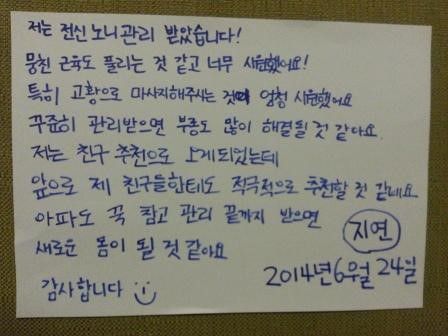 저는 전신 노니관리 받았습니다!
뭉친 근육도 풀리는 것 같고 너무 시원했어요!
특히 고황으로 마사지해주시는 것때 엄청 시원했어요
꾸준히 관리받으면 부종도 많이 해결될 것 같아요.
저는 친구 추천으로 오게되었는데
앞으로 제 친구들한테도 적극적으로 추천할 것 같네요
아파도 꾹 참고 관리 끝까지 받으면
새로운 몸이 될 것 같아요
지연
감사합니다
2014년 6월 24일